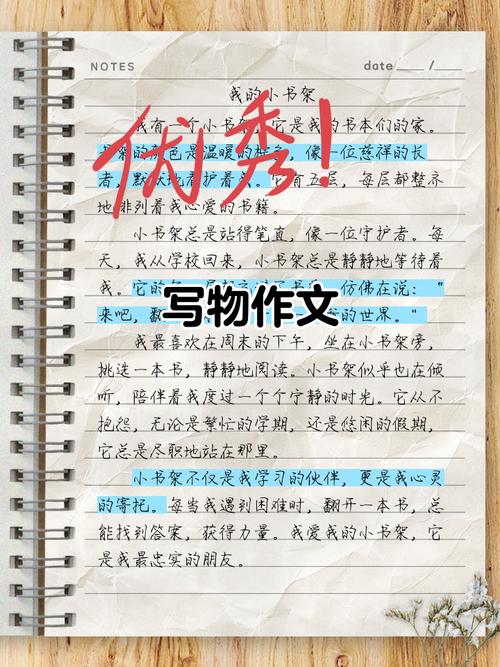 NOTES
date / 
我的小书架
我有一个小书架，它是我的书本们的家。
书架的颜色是温暖的棕色，像一位慈祥的长
者，默默地看护着我。它有五层，每层都整齐
地排列着我心爱的书籍。
小书架总是站得笔直，像一位守护者。每
天，我从学校回来，小书架总是静静地等待着
我。它的每一层都 仿佛在说：“
来吧， 的世界。”
我最喜欢在周末的下午，坐在小书架旁，
挑选一本书，静静地阅读。小书架似乎也在倾
听，陪伴着我度过一个个宁静的时光。它从不
抱怨，无论是繁忙的学期，还是悠闲的假期，
它总是尽职地站在那里。
小书架不仅是我学习的伙伴，更是我心灵
的寄托。每当我遇到困难时，翻开一本书，总
能找到答案，获得力量。我爱我的小书架，它
是我最忠实的朋友。
优秀！
写物作文